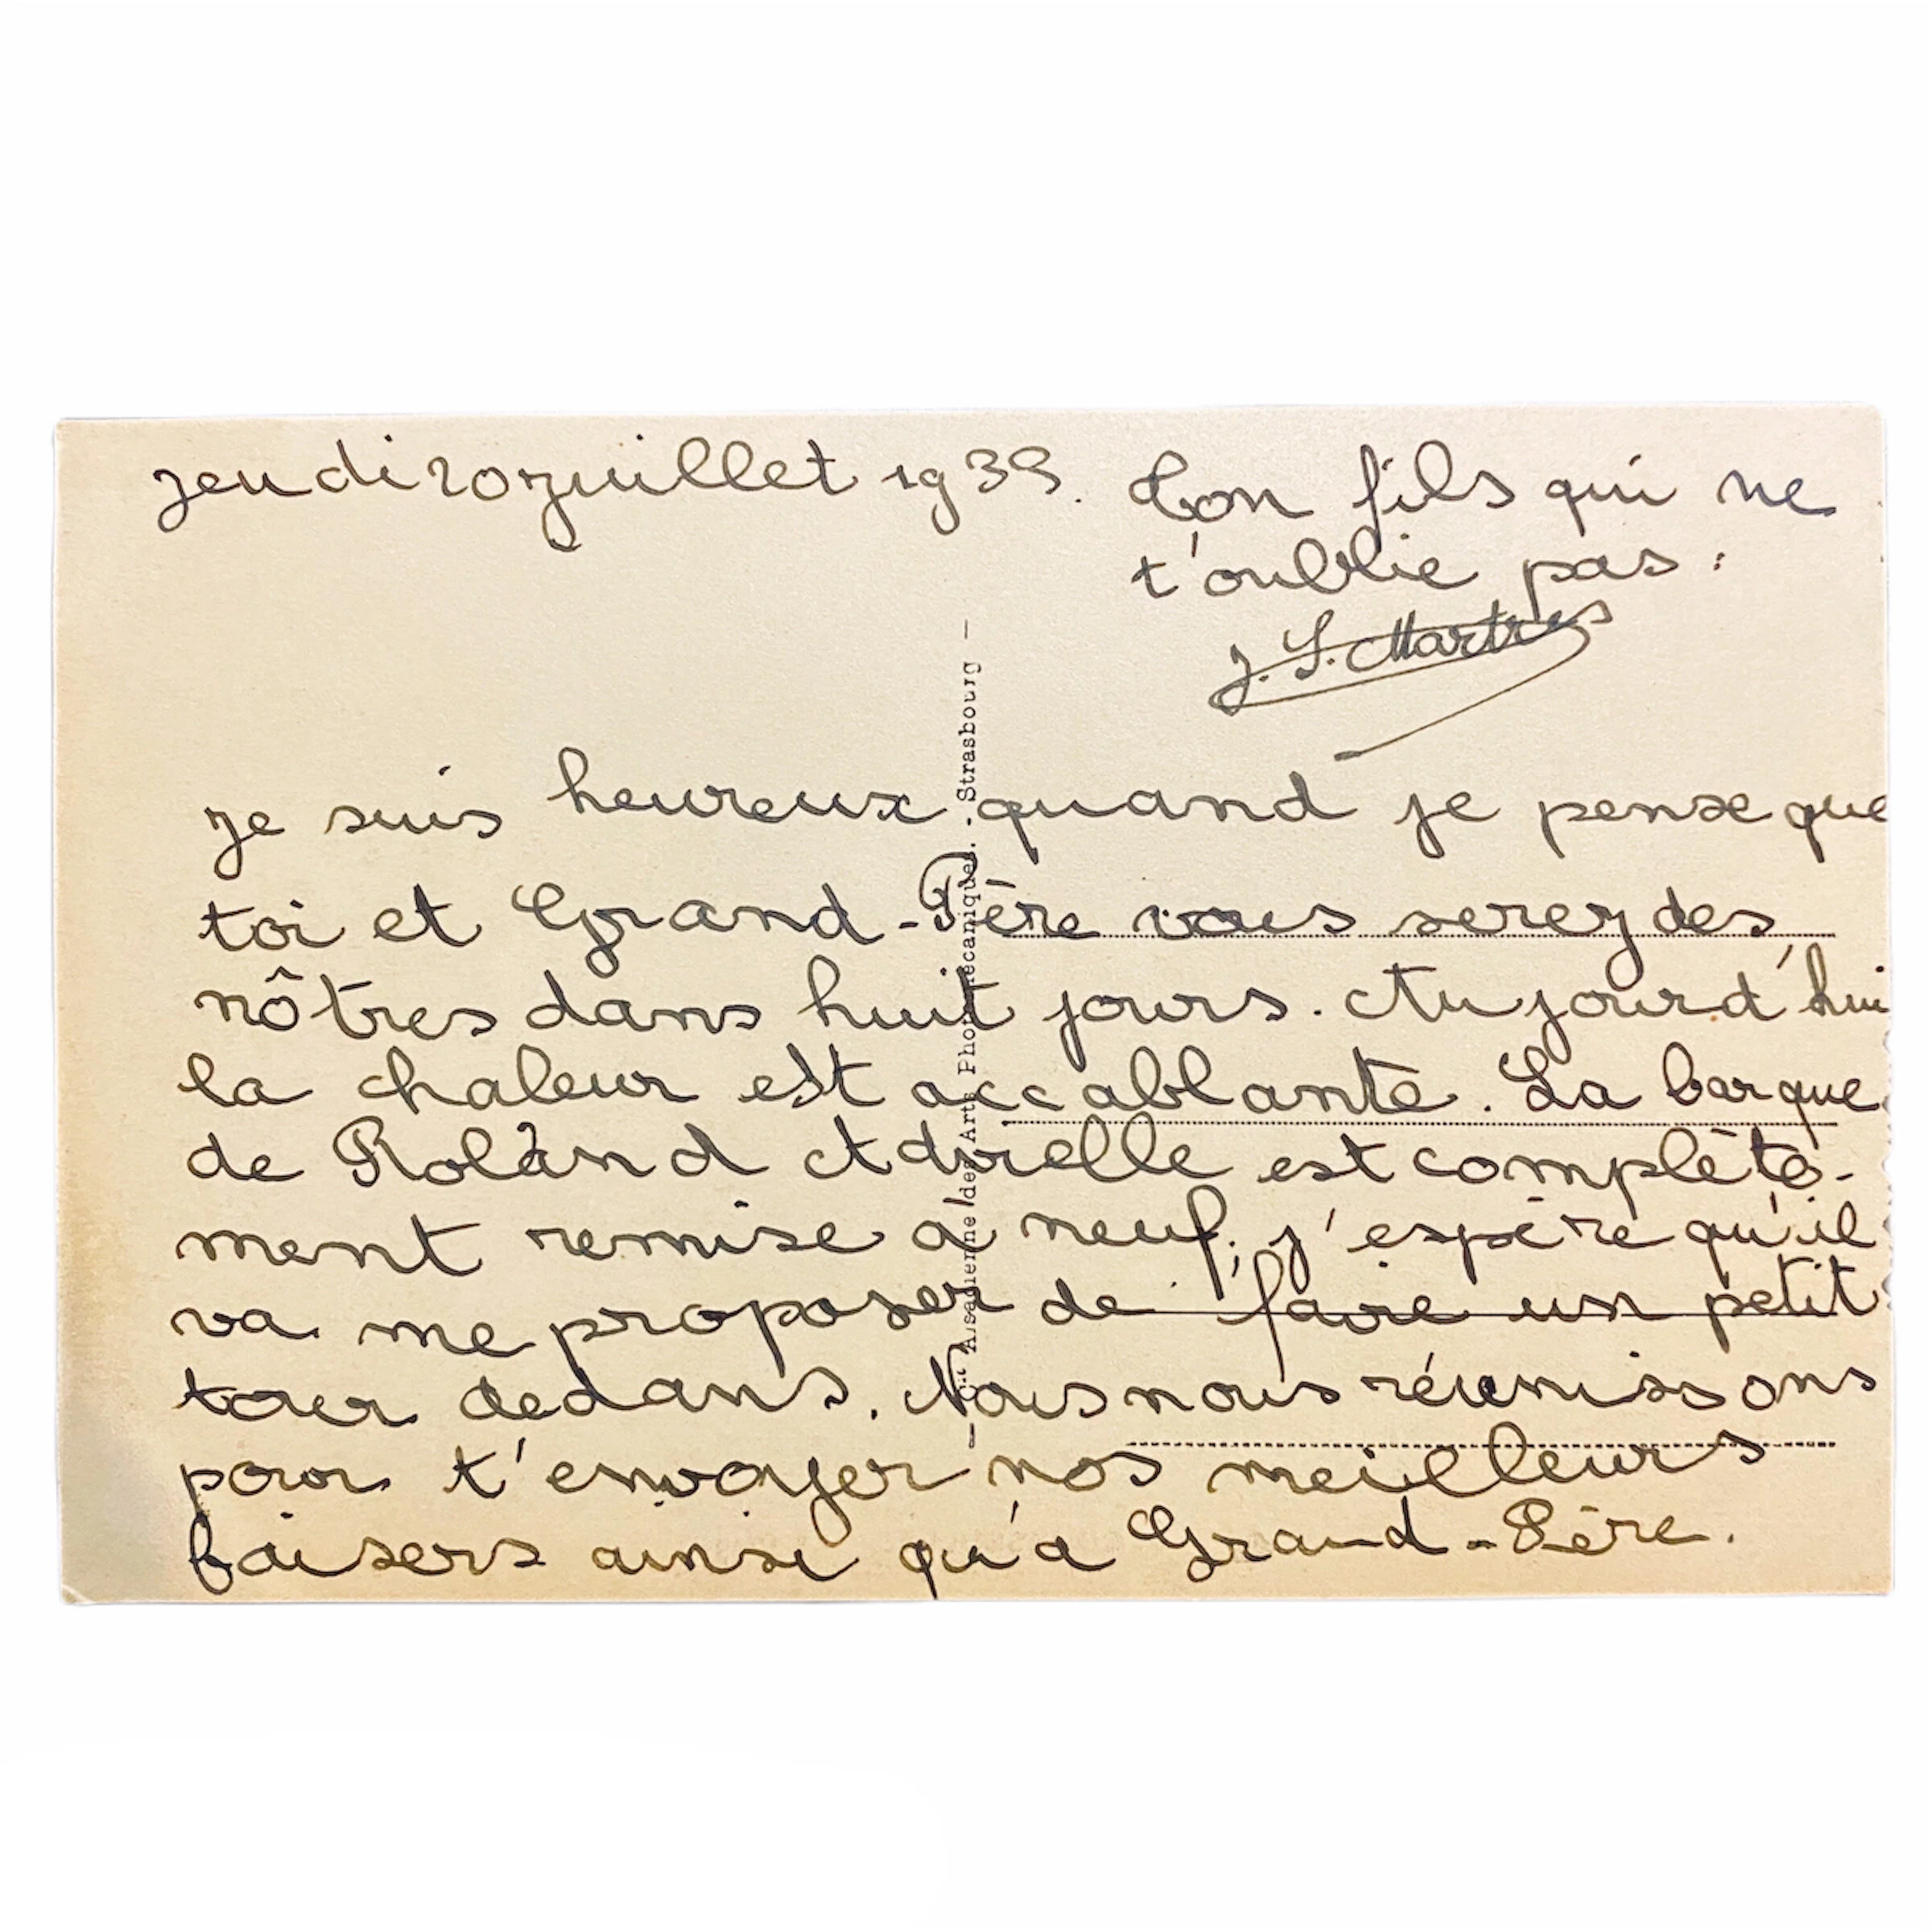 jeudi 20 juillet 1939.
je suis heureux quand je pense que
toi et Grand-Père vous serez des
nôtres dans huit jours. Aujourd'hui
la chaleur est accablante. La barque
de Roland est complète-
ment remise à neuf. j'espère qu'il
va me proposer de faire un petit
tour dedans. Nous nous réunissons
pour t'envoyer nos meilleurs
baisers ainsi qu'à Grand-Père.
Ton fils qui ne
t'oublie pas :
J. S. Martres
- Cie Alsacienne des Arts Photomécaniques. . Strasbourg -